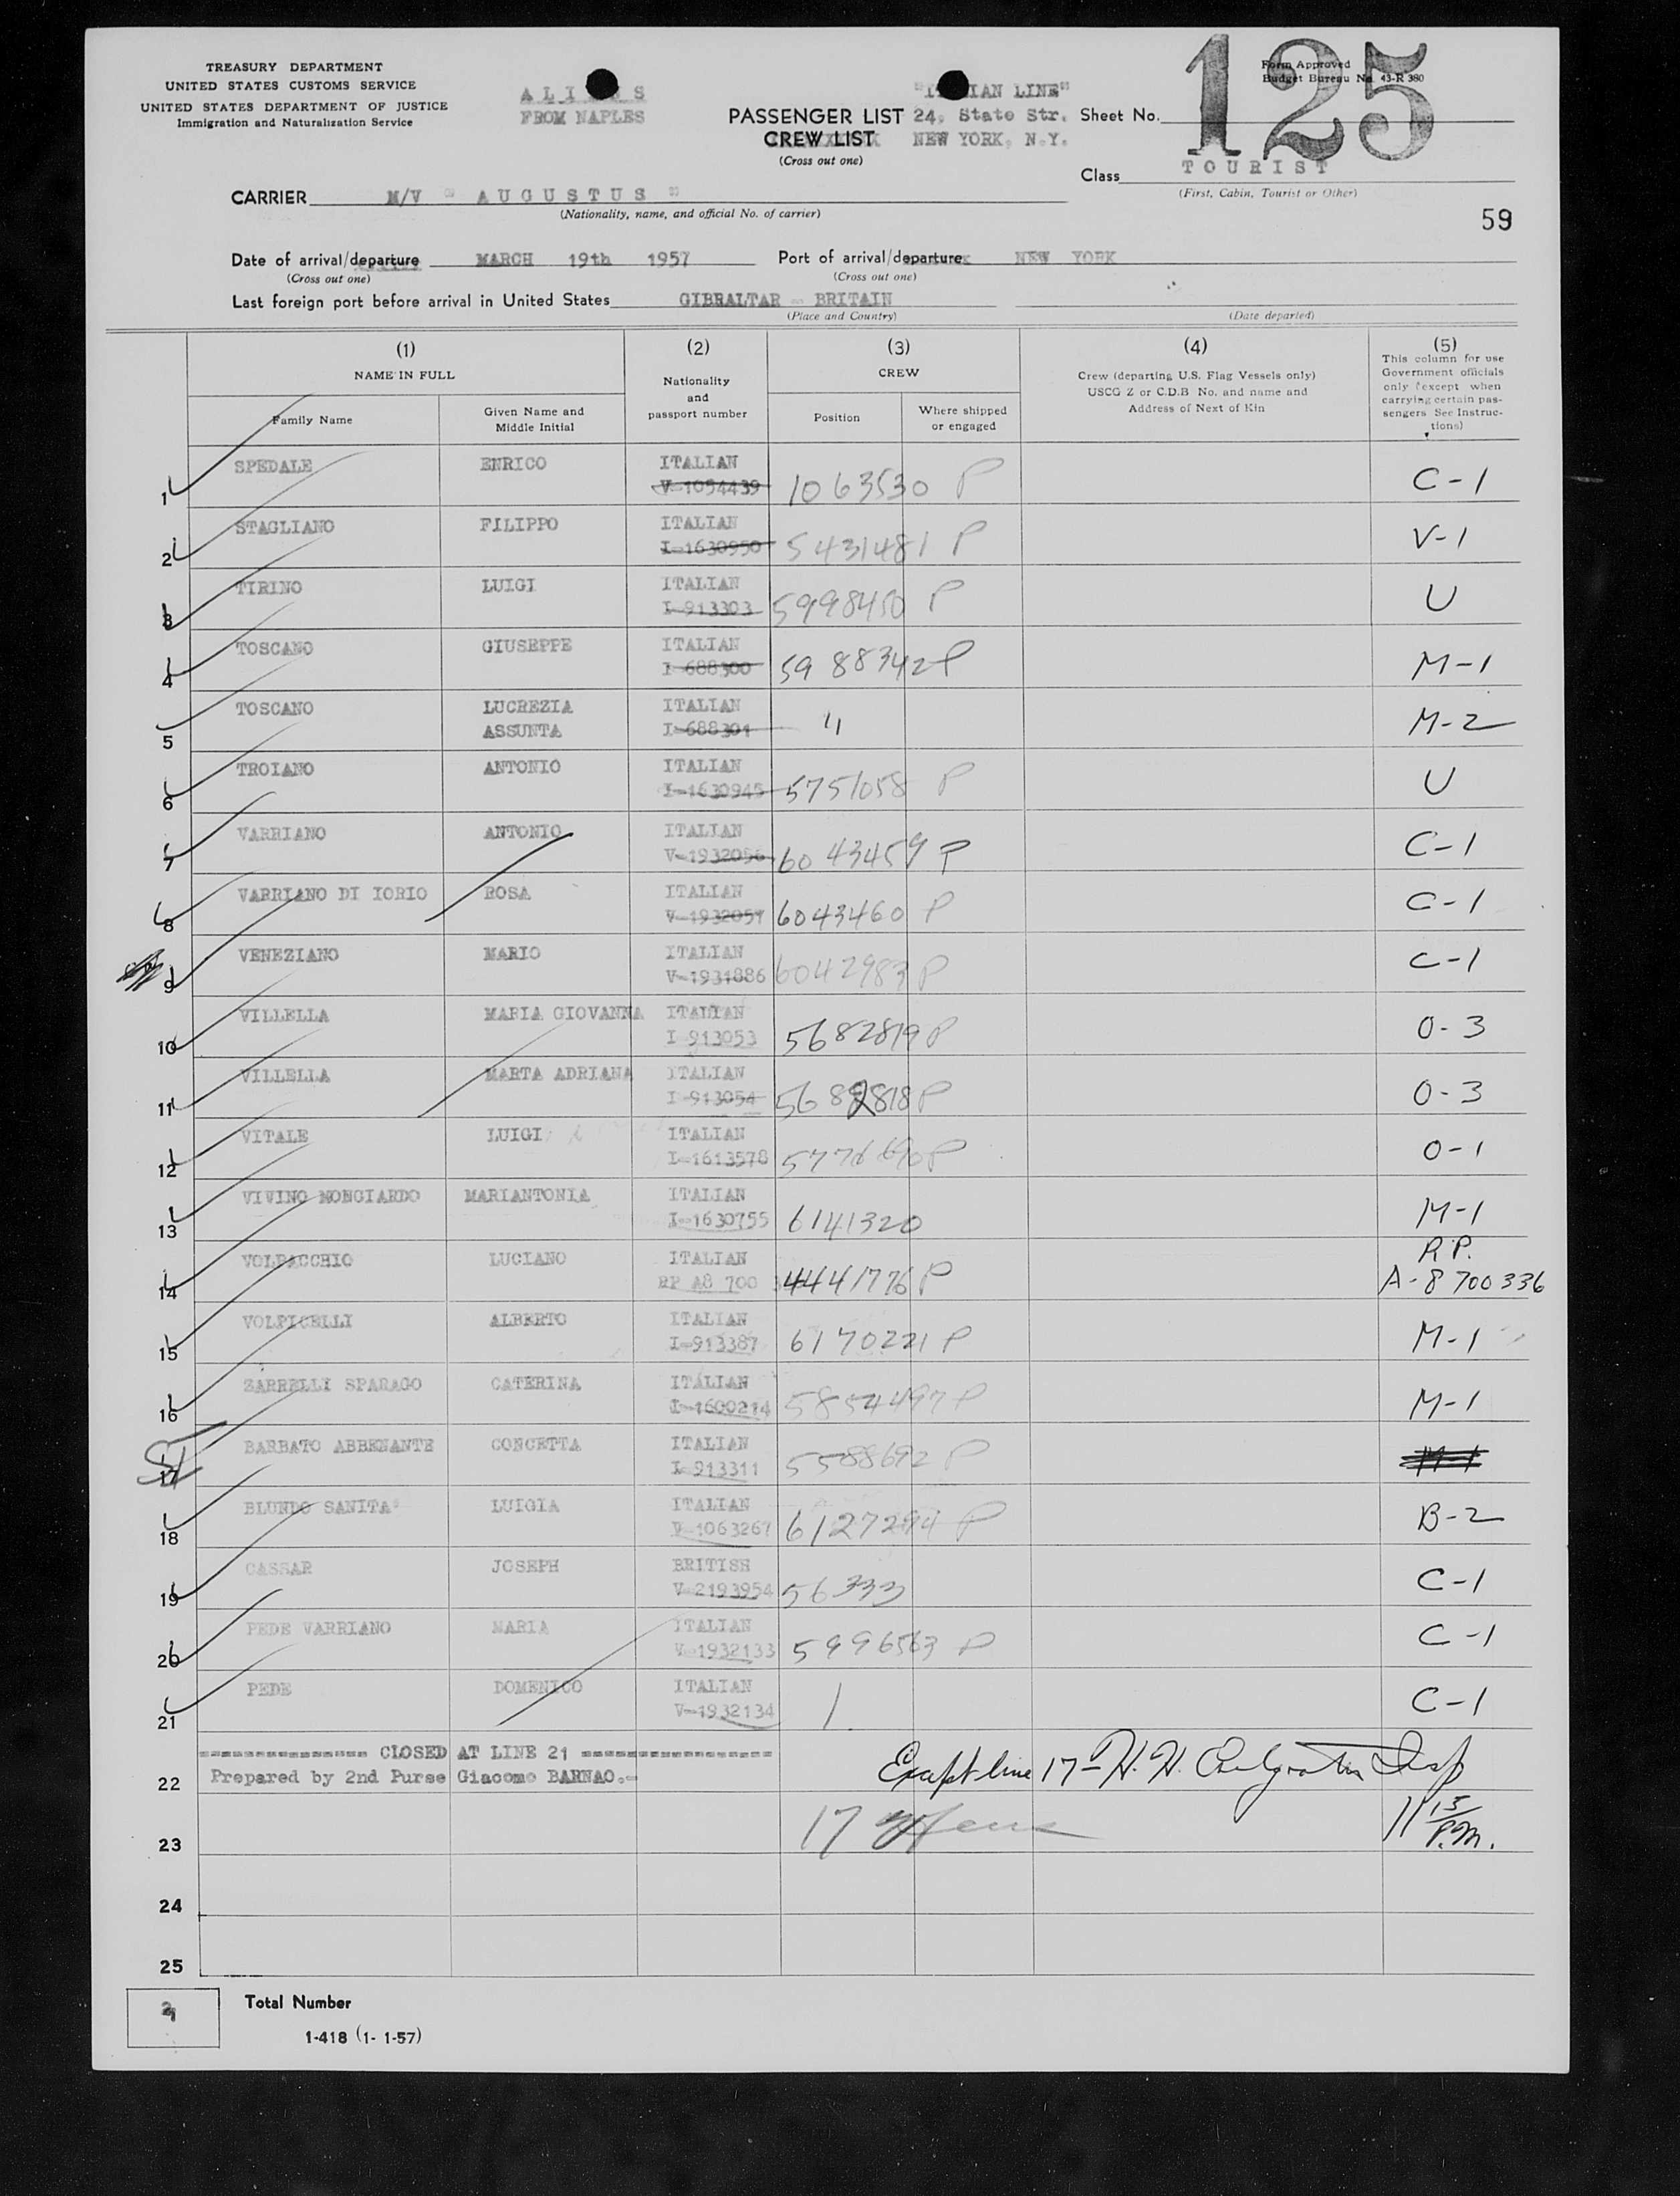 TREASURY DEPARTMENT
UNITED STATES CUSTOMS SERVICE
UNITED STATES DEPARTMENT OF JUSTICE
Immigration and Naturalization Service
FROM NAPLES
PASSENGER LIST
CREW LIST
(Cross out one)
IAN LINE"
24, State Str.
NEW YORK, N.Y.
Form Approved
Budget Bureau No. 43-R 380
Sheet No. 125
Class TOURIST
(First, Cabin, Tourist or Other)
CARRIER M/V " AUGUSTUS "
(Nationality, name, and official No. of carrier)
59
Date of arrival/departure MARCH 19th 1957 Port of arrival/departure NEW YORK
(Cross out one) (Cross out one)
Last foreign port before arrival in United States GIBRALTAR - BRITAIN
(Place and Country) (Date departed)
(1) (2) (3) (4) (5)
NAME IN FULL
Family Name
Given Name and Middle Initial
Nationality and passport number
CREW
Position
Where shipped or engaged
Crew (departing U.S. Flag Vessels only)
USCG Z or C.D.B No. and name and
Address of Next of Kin
This column for use
Government officials
only (except when
carrying certain pas-
sengers See Instruc-
tions)
1 SPEDALE ENRICO ITALIAN V-1054439 1063530 P C-1
2 STAGLIANO FILIPPO ITALIAN I-1630950 5431481 P V-1
3 TIRINO LUIGI ITALIAN I-913303 5998450 P U
4 TOSCANO GIUSEPPE ITALIAN I-688300 5988342 P M-1
5 TOSCANO LUCREZIA ASSUNTA ITALIAN I-688301 " M-2
6 TROIANO ANTONIO ITALIAN I-1630945 5751058 P U
7 VARRIANO ANTONIO ITALIAN V-1932056 6043459 P C-1
8 VARRIANO DI IORIO ROSA ITALIAN V-1932057 6043460 P C-1
9 VENEZIANO MARIO ITALIAN V-1931886 6042983 P C-1
10 VILLELLA MARIA GIOVANNA ITALIAN I-913053 5682819 P O-3
11 VILLELLA MARTA ADRIANA ITALIAN I-913054 5682818 P O-3
12 VITALE LUIGI ITALIAN I-1613578 P O-1
13 VIVINO MONGIARDO MARIANTONIA ITALIAN I-1630755 6141320 M-1
14 VOLPACCHIO LUCIANO ITALIAN RP A8 700 4441776 P R.P. A-8 700 336
15 VOLPICELLI ALBERTO ITALIAN I-913387 6170221 P M-1
16 ZARRELLI SPARAGO CATERINA ITALIAN I-1600214 5854497 P M-1
17 BARBATO ABBENANTE CONCETTA ITALIAN I-913311 5588692 P M-1
18 BLUNDO SANITA' LUIGIA ITALIAN V-1063267 6127294 P B-2
19 CASSAR JOSEPH BRITISH V-2193954 56333 C-1
20 PEDE VARRIANO MARIA ITALIAN V-1932133 5996563 P C-1
21 PEDE DOMENICO ITALIAN V-1932134 C-1
---------------- CLOSED AT LINE 21 ------------------
22 Prepared by 2nd Purse Giacomo BARNAO.-
Except line 17 - H.H. Insp
23 17 11 15 P.M.
24
25
21 Total Number
I-418 (1- 1-57)